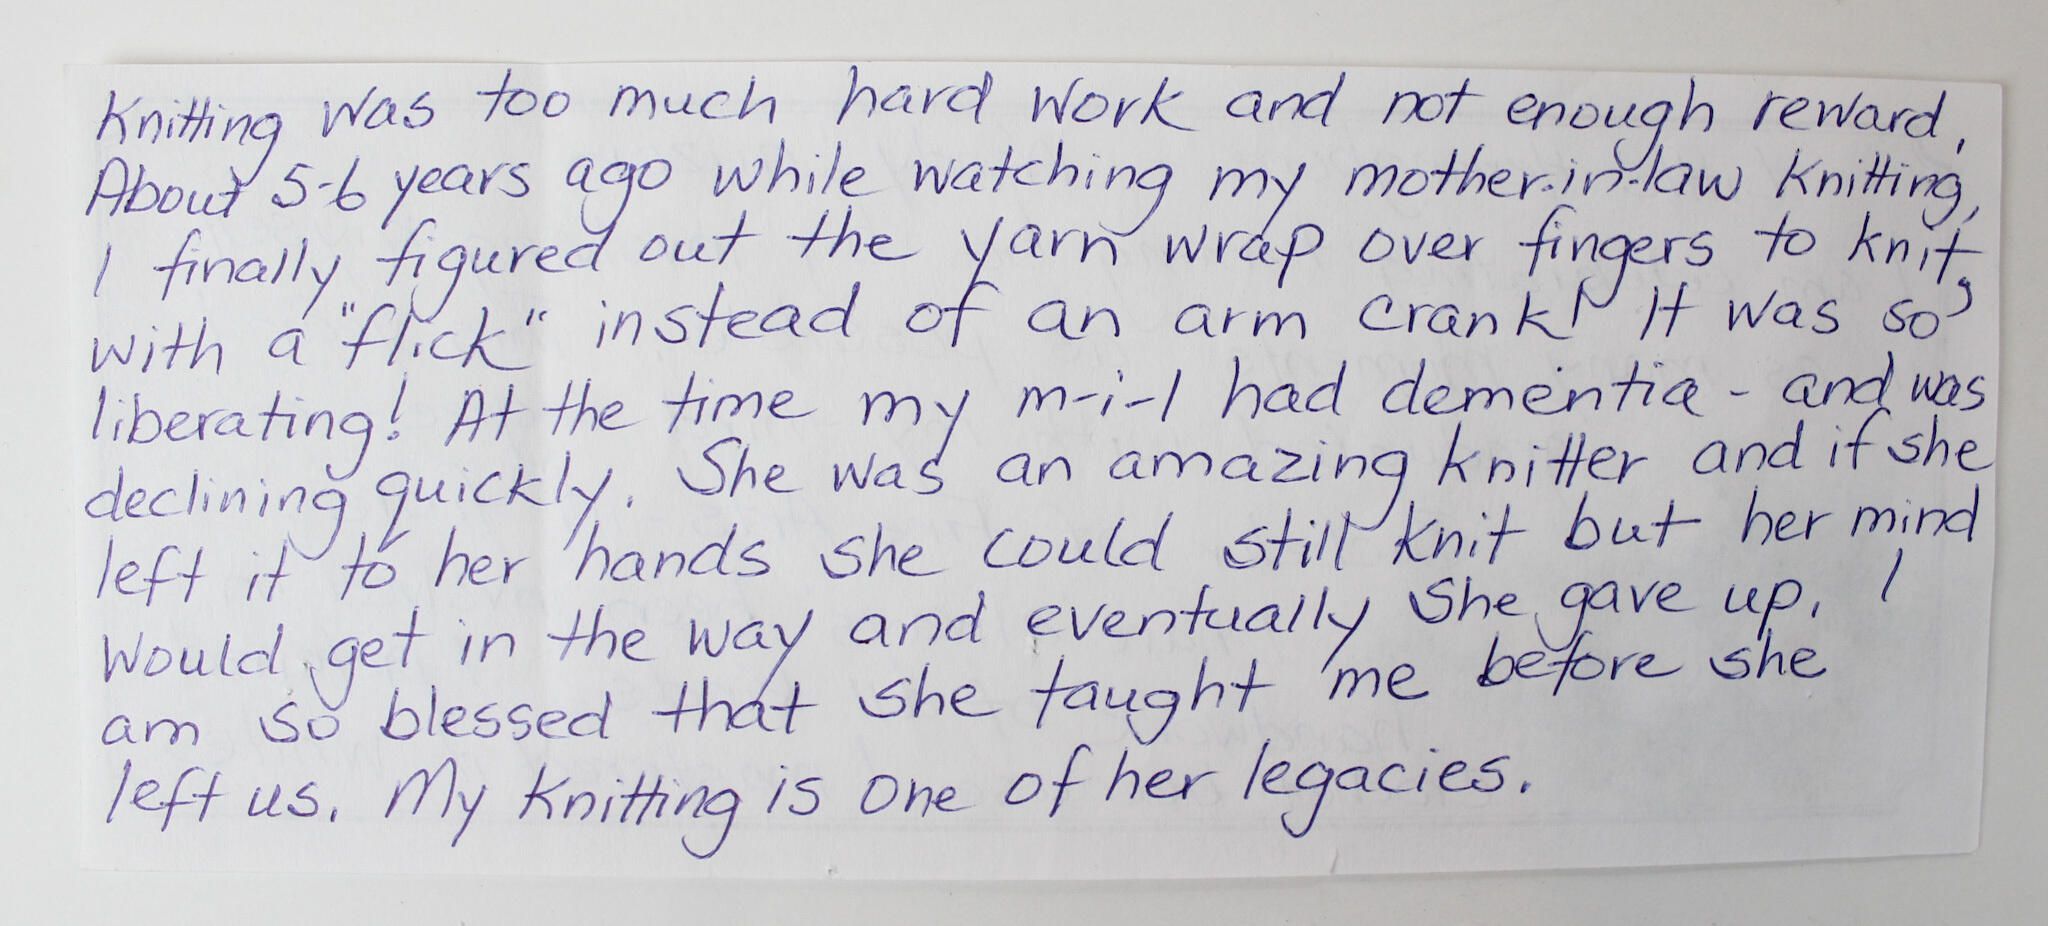 Knitting was too much hard work and not enough reward.
About 5-6 years ago while watching my mother-in-law knitting,
I finally figured out the yarn wrap over fingers to knit,
with a "flick" instead of an arm crank! It was so
liberating! At the time my m-i-l had dementia - and was
declining quickly. She was an amazing knitter and if she
left it to her hands she could still knit but her mind
would get in the way and eventually she gave up. I
am so blessed that she taught me before she
left us. My knitting is one of her legacies.